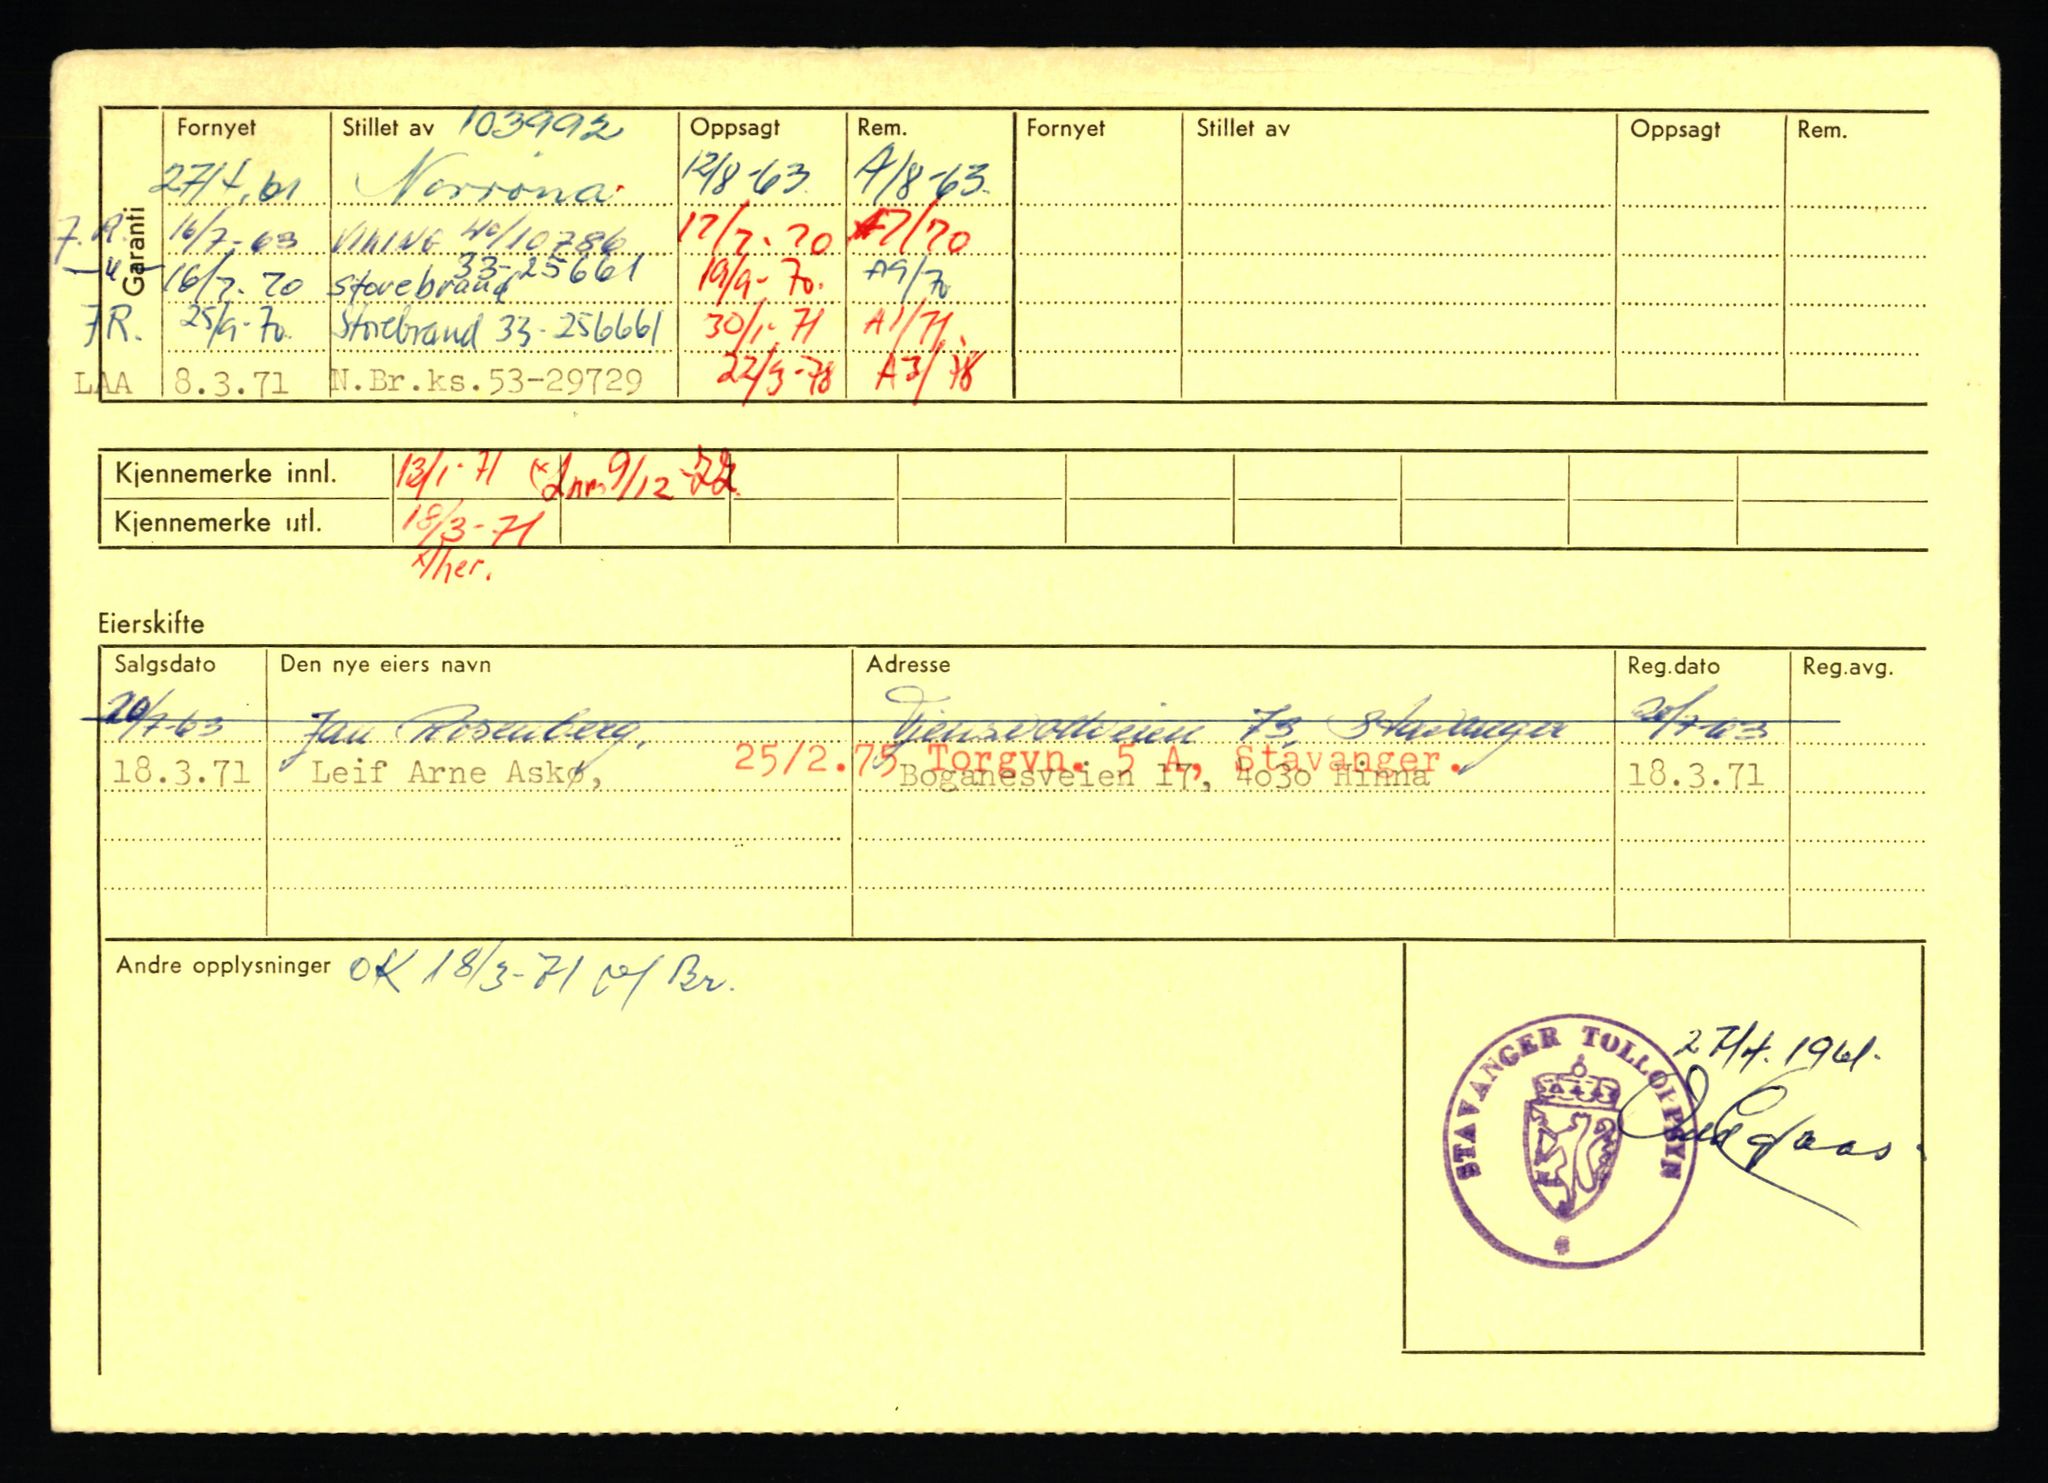 Garanti
Fornyet Stillet av 103992 Oppsagt Rem. Fornyet Stillet av Oppsagt Rem.
27/4.61 Norrøna. 12/8-63 A/8-63.
J.R. 16/7-63 VIKING 40/10786 17/7-70 A7/70
—"— 16/7-70 Storebrand 33-25661 19/9-70. A9/70
J.R. 25/9-70. Storebrand 33-256661 30/1-71 A1/71
LAA 8.3.71 N.Br.ks.53-29729 22/3-78 A3/78
Kjennemerke innl. 13/1-71 (x 2nr. 9/12-77.
Kjennemerke utl. 18/3-71
x/her.
Eierskifte
Salgsdato Den nye eiers navn Adresse Reg.dato Reg.avg.
20/7-63 Jan Rosenberg, 73, Stavanger 20/7-63
25/2.75 Torgvn. 5 A, Stavanger.
18.3.71 Leif Arne Askø, Boganesveien 17, 4o3o Hinna 18.3.71
Andre opplysninger OK 18/3-71 Br.
STAVANGER TOLLOPPSYN
4
27/4.1961.